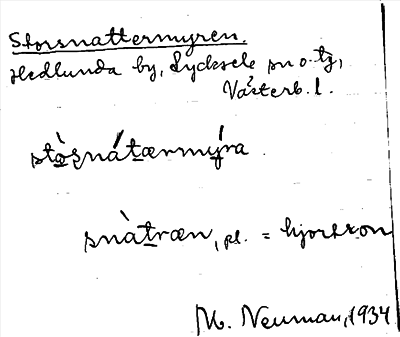 Storsnattermyren.
Hedlunda by, Lycksele sn o. tg,
Västerb. l.
stòsnátærmýra.
snàtræn, pl. = hjortron
M. Neuman, 1934